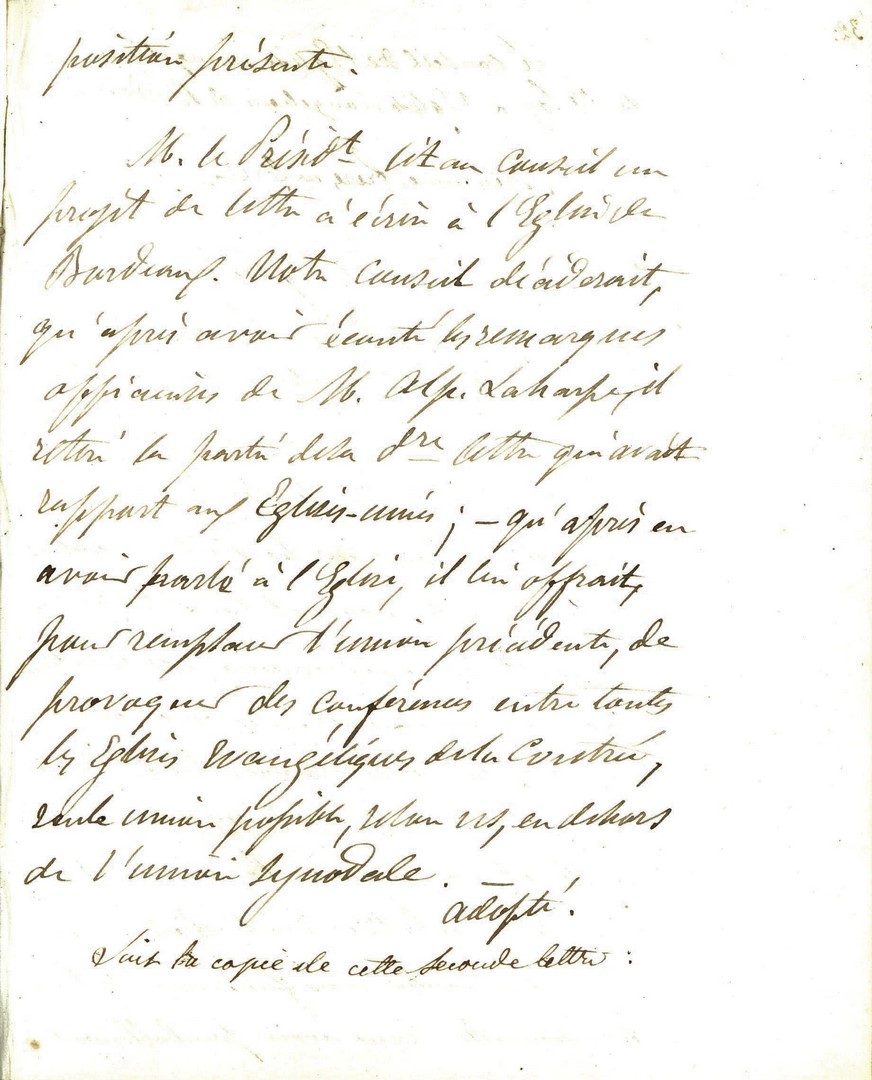 position présente.
M. le Présid^t lit au Conseil un
projet de lettre à écrire à l'Eglise de
Bordeaux. Notre Conseil déciderait,
qu'après avoir écouté les remarques
officieuses de M. Alp. Laharpe, il
retire la partie de la d^re lettre qui avait
rapport aux Eglises-unies ; – qu'après en
avoir parlé à l'Eglise, il lui offrait,
pour remplacer l'union précédente, de
provoquer des conférences entre toutes
les Eglises Evangéliques de la Contrée,
seule union possible, selon us, en dehors
de l'union synodale.
adopté.
Suit la copie de cette seconde lettre :